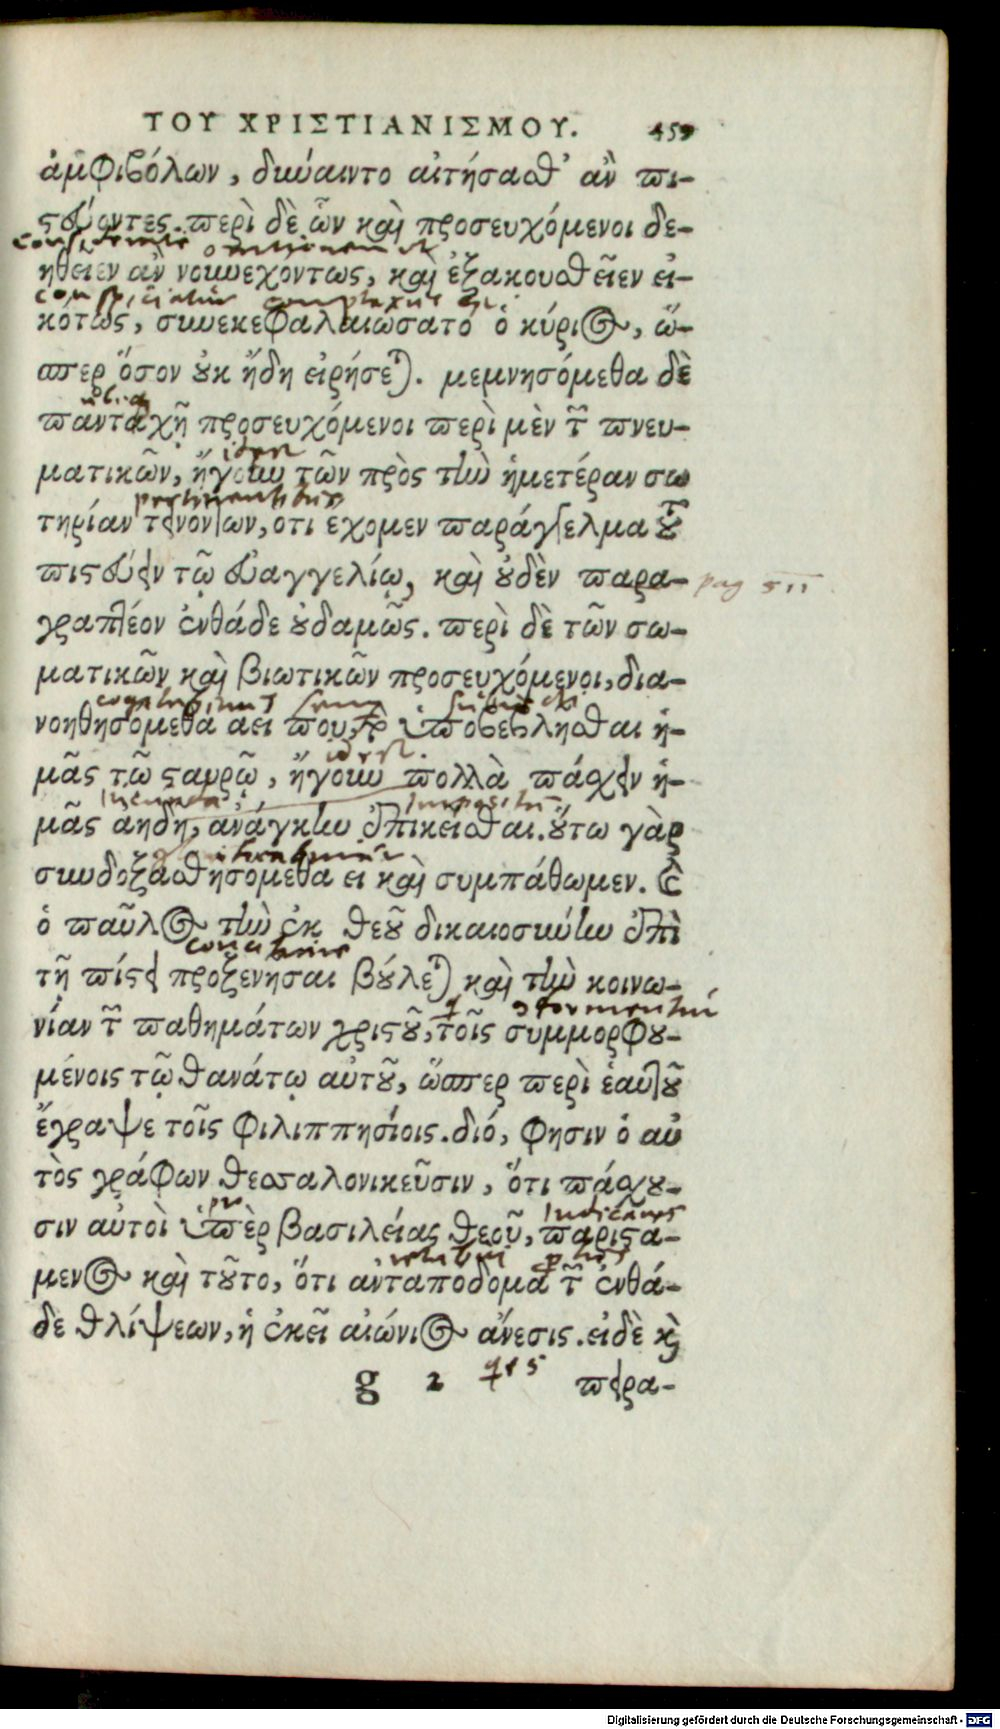 ΤΟΥ ΧΡΙΣΤΙΑΝΙΣΜΟΥ. 459
ἀμφιβόλων, δύναιντο αἰτήσασθ᾽ ἂν πι-
στεύοντες. περὶ δὲ ὧν καὶ προσευχόμενοι δε-
ηθεῖεν ἂν νουνεχόντως, καὶ ἐξακουσθεῖεν εἰ-
conspiciatur complexus est
κότως, συνεκεφαλαιώσατο ὁ κύριος, ὥ-
σπερ ὅσον οὐκ ἤδη εἰρήσεται. μεμνησόμεθα δὲ
ubiq
πανταχῆ προσευχόμενοι περὶ μὲν τῶν πνευ-
ματικῶν, ἤγουν τῶν πρὸς τὴν ἡμετέραν σω
pertinentibus
τηρίαν τεινόντων, ὅτι ἔχομεν παράγγελμα τοῦ
πιστεύειν τῷ εὐαγγελίῳ, καὶ οὐδὲν παρα- pag 511
γραπτέον ἐνθάδε οὐδαμῶς. περὶ δὲ τῶν σω-
ματικῶν καὶ βιωτικῶν προσευχόμενοι, δια-
νοηθησόμεθα αεί που, τὸ ὑποβεβλῆσθαι ἡ-
idest.
μᾶς τῷ σταυρῷ, ἤγουν πολλὰ πάσχειν ἡ-
μᾶς ἀηδῆ, ἀνάγκην ἐπικεῖσθαι. οὕτω γὰρ
συνδοξασθησόμεθα εἰ καὶ συμπάθωμεν. καὶ
ὁ παῦλος τὴν ἐκ θεοῦ δικαιοσύνην ἐπὶ
τῇ πίστει προξενῆσαι βούλεται καὶ τὴν κοινω-
νίαν τῶν παθημάτων χριστοῦ, τοῖς συμμορφου-
μένοις τῷ θανάτῳ αὐτοῦ, ὥσπερ περὶ ἑαυτοῦ
ἔγραψε τοῖς φιλιππησίοις. διό, φησιν ὁ αὐ
τὸς γράφων θεσσαλονικεῦσιν, ὅτι πάσχου-
σιν αὐτοὶ ὑπὲρ βασιλείας θεοῦ, παριστά-
μενος καὶ τοῦτο, ὅτι ἀνταπόδομα τῶν ἐνθά-
δε θλίψεων, ἡ ἐκεῖ αἰώνιος ἄνεσις. εἰ δὲ καὶ
g 2 πειρα-
Digitalisierung gefördert durch die Deutsche Forschungsgemeinschaft - DFG